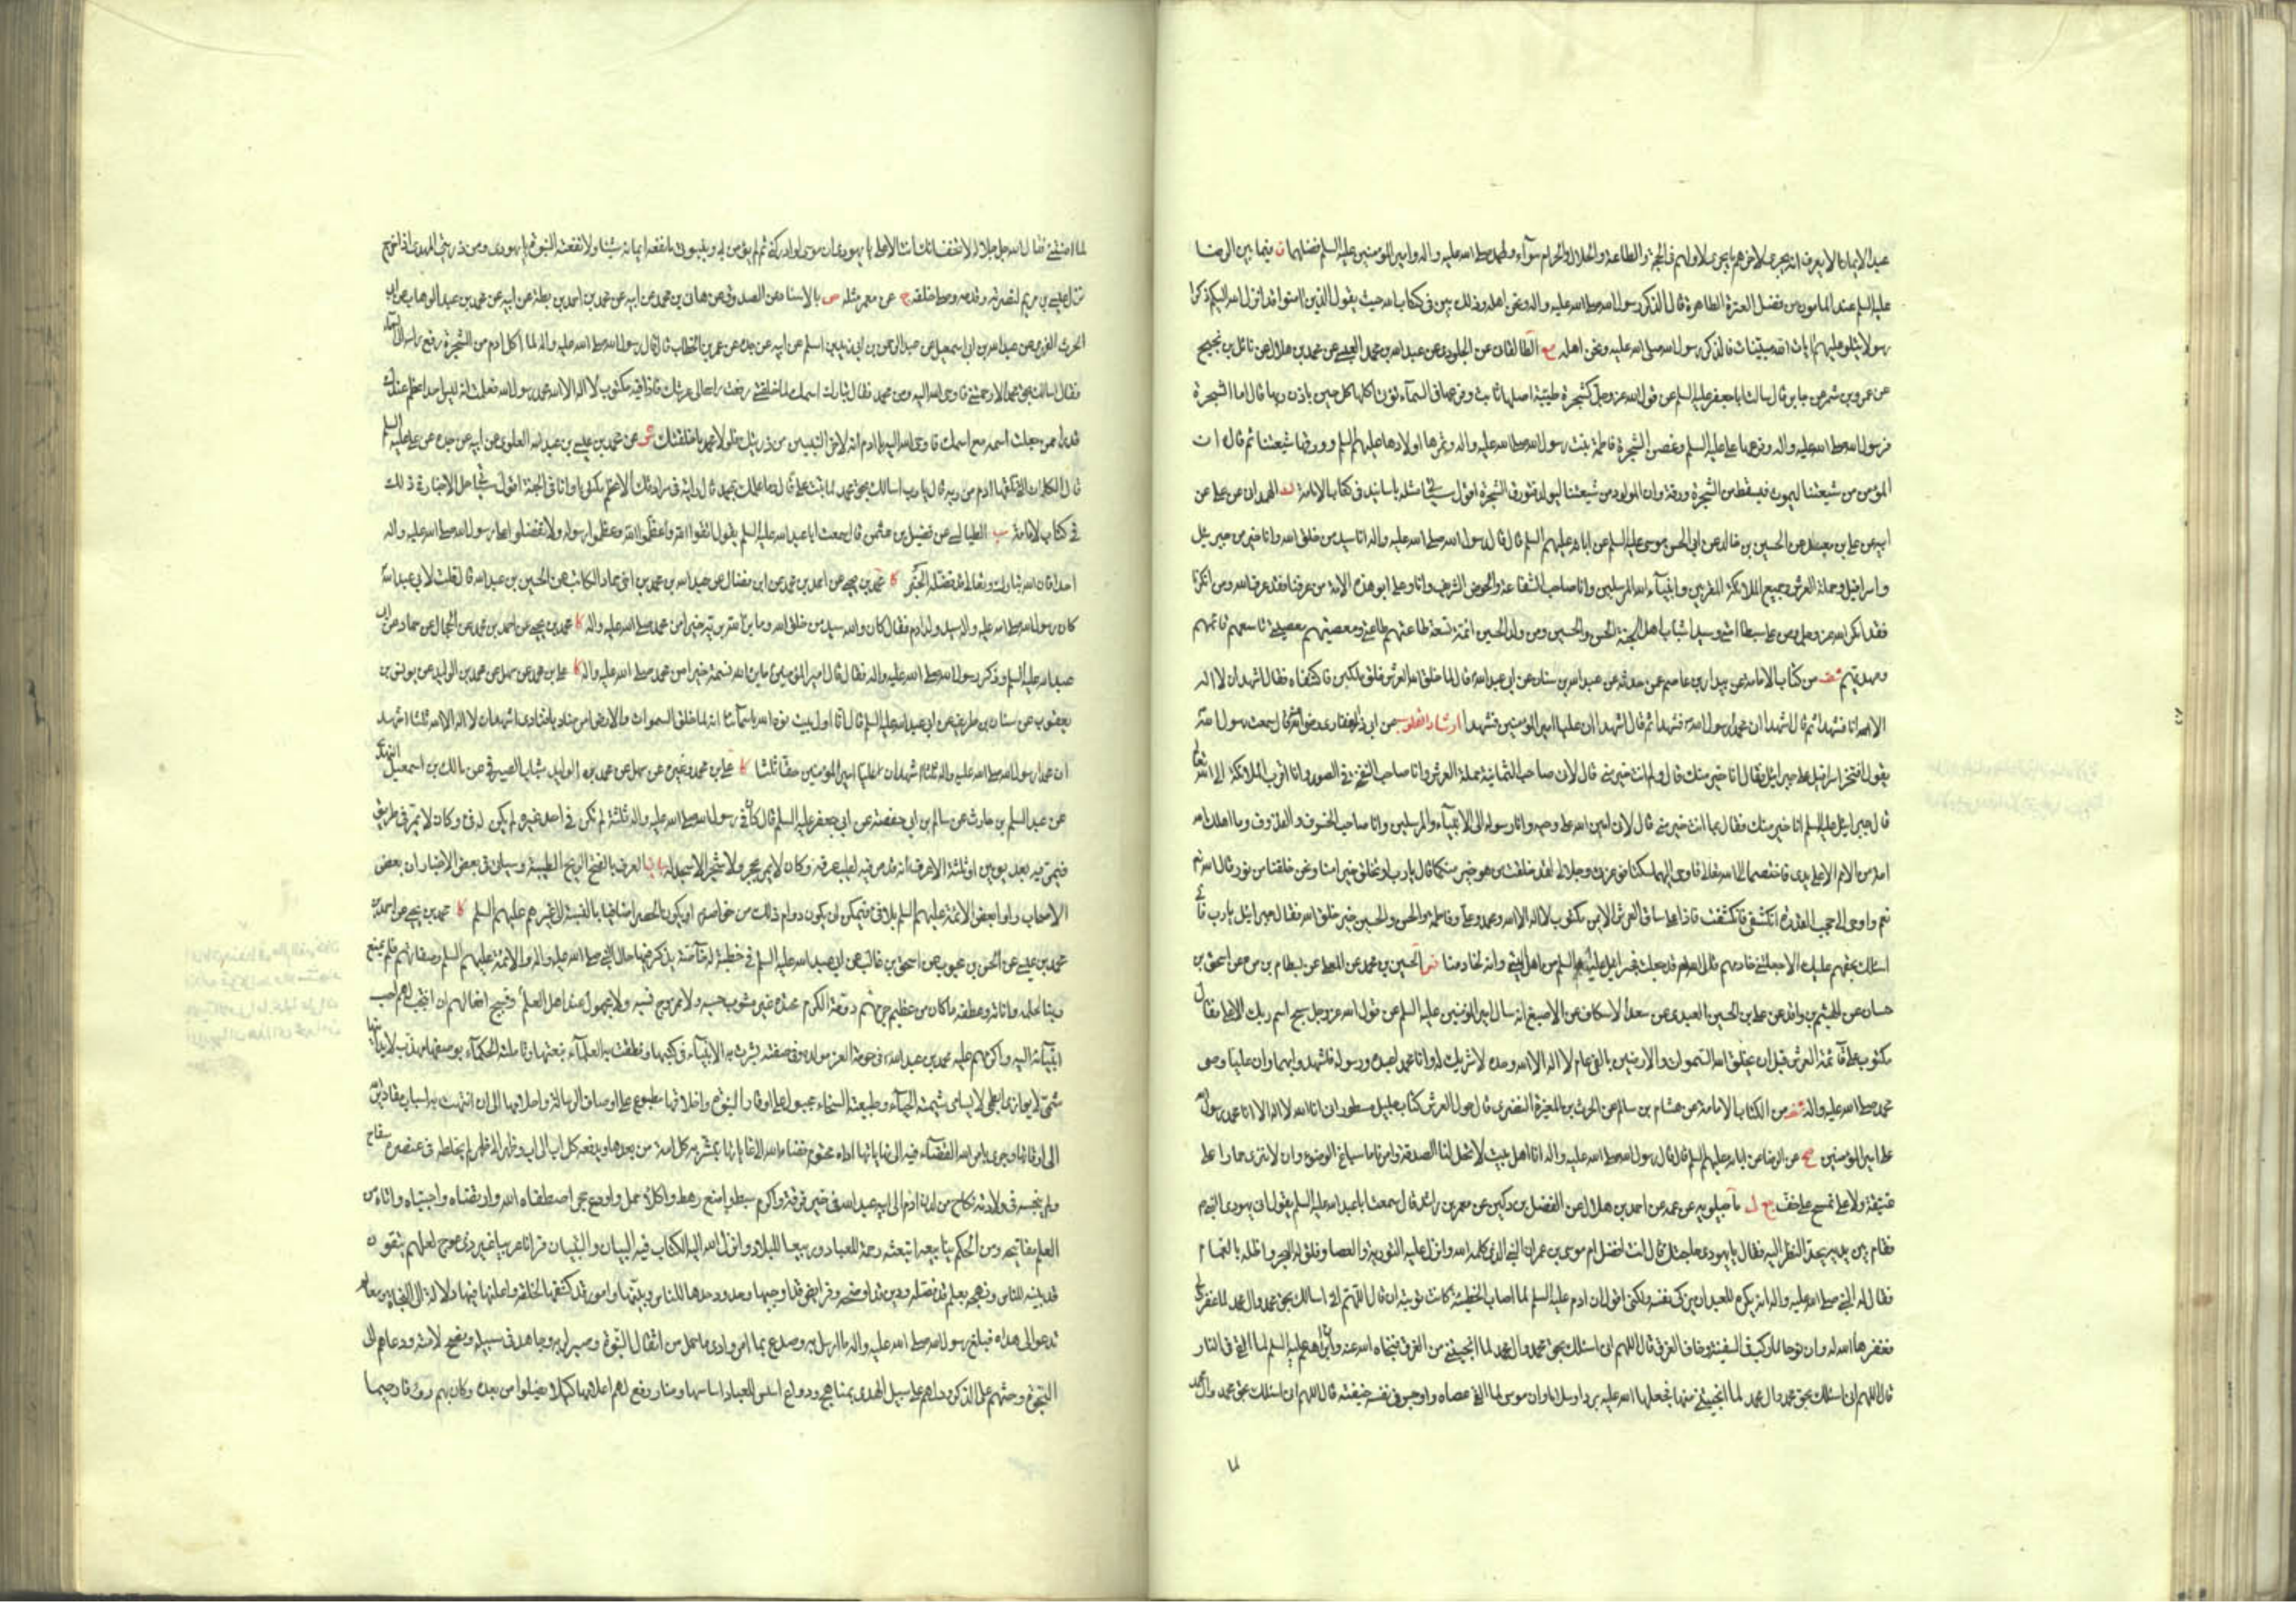 عبد الايمان الا يعرف انه يجري لاخرهم ما يجري لاولهم في الحجة والطاعة والحلال والحرام سواء ولمحمد صلى الله عليه واله وامير المؤمنين عليه السلم فضلهما ن فيما بين الرضا
عليه السلم عند المامون من فضل العترة الطاهرة قال الذكر رسول الله صلى الله عليه واله ونحن اهله وذلك بين في كتاب الله حيث يقول الذين امنوا قد انزل الله اليكم ذكرا
رسولا يتلو عليكم ايات الله مبينات فالذكر رسول الله صلى الله عليه ونحن اهله مع الطالقاني عن الجلودي عن عبد الله بن محمد العبسي عن محمد بن هلال عن نائل بن نجيح
عن عمرو بن شمر عن جابر قال سالت ابا جعفر عليه السلم عن قول الله عز وجل كشجرة طيبة اصلها ثابت وفرعها في السماء تؤتي اكلها كل حين باذن ربها قال اما الشجرة
فرسول الله صلى الله عليه واله وفرعها علي عليه السلم وغصن الشجرة فاطمة بنت رسول الله صلى الله عليه واله وثمرها اولادها عليهم السلم وورقها شيعتنا ثم قال ان
المؤمن من شيعتنا ليموت فيسقط من الشجرة ورقة وان المولود من شيعتنا ليولد فتورق الشجرة اقول سيجئ مثله باسانيد في كتاب الامامة لد الهمداني عن علي عن
ابيه عن علي بن معبد عن الحسين بن خالد عن ابي الحسن موسى عليه السلم عن ابائه عليهم السلم قال قال رسول الله صلى الله عليه واله انا سيد من خلق الله وانا خير من جبرئيل
واسرافيل وحملة العرش وجميع الملائكة المقربين وانبياء الله المرسلين وانا صاحب الشفاعة والحوض الشريف وانا وعلي ابوا هذه الامة من عرفنا فقد عرف الله ومن انكرنا
فقد انكر الله عز وجل ومن علي سبطا امتي وسيدا شباب اهل الجنة الحسن والحسين ومن ولد الحسين ائمة تسعة طاعتهم طاعتي ومعصيتهم معصيتي تاسعهم قائمهم
ومهديهم شف من كتاب الامامة عن عاصم عن عبد الله بن سنان عن ابي عبد الله قال لما خلق الله العرش خلق ملكين فاكتنفاه فقال اشهدا ان لا اله
الا الله انا فشهدا ثم قال اشهدا ان محمدا رسول الله فشهدا ثم قال اشهدا ان عليا امير المؤمنين فشهدا ارشاد القلوب عن ابي ذر الغفاري رضي الله قال سمعت رسول الله
يقول افتخر اسرافيل على جبرائيل فقال انا خير منك قال ولم انت خير مني قال لاني صاحب الثمانية حملة العرش وانا صاحب النفخة في الصور وانا اقرب الملائكة الى الله تعالى
قال جبرائيل عليه السلم انا خير منك فقال بما انت خير مني قال لاني امين الله على وحيه وانا رسوله الى الانبياء والمرسلين وانا صاحب الخسوف والقذوف وما اهلك الله
امة من الامم الا على يدي فاختصما الى الله تعالى فاوحى اليهما اسكتا فوعزتي وجلالي لقد خلقت من هو خير منكما قال يا رب او تخلق خيرا منا ونحن خلقتنا من نور قال الله
نعم واوحى الى حجب القدرة انكشفي فانكشفت فاذا على ساق العرش الايمن مكتوب لا اله الا الله محمد وعلي وفاطمة والحسن والحسين خير خلق الله فقال جبرائيل يا رب
اسئلك بحقهم عليك الا جعلتني خادمهم قال الله قد جعلت فجبرائيل عليه السلم من اهل البيت وانه لخادمنا الحسين بن محمد عن المعلى عن بسطام بن مرة عن اسحق بن
حسان عن الهيثم بن واقد عن علي بن الحسين العبدي عن سعد الاسكاف عن الاصبغ انه سال امير المؤمنين عليه السلم عن قول الله عز وجل سبح اسم ربك الاعلى فقال
مكتوب على قائمة العرش قبل ان يخلق الله السموات والارضين بالفي عام لا اله الا الله وحده لا شريك له وان محمدا عبده ورسوله فاشهدوا بهما وان عليا وصي
محمد صلى الله عليه واله شف من الكتاب الامامة عن هشام بن سالم عن الحرث بن المغيرة النضري قال حول العرش كتاب جليل مسطور اني انا الله لا اله الا انا محمد رسول الله
علي امير المؤمنين صح عن الرضا عن ابائه عليهم السلم قال قال رسول الله صلى الله عليه واله انا اهل بيت لا تحل لنا الصدقة وامرنا باسباغ الوضوء وان لا ننزي حمارا على
عتيقة ولا نمسح على خف ج ل ماجيلويه عن عمه عن احمد بن هلال عن الفضل بن دكين عن معمر بن راشد قال سمعت ابا عبد الله عليه السلم يقول اتى يهودي النبي
فقام بين يديه يحد النظر اليه فقال يا يهودي ما حاجتك قال انت افضل ام موسى بن عمران النبي الذي كلمه الله وانزل عليه التورية والعصا وفلق له البحر واظله بالغمام
فقال له النبي صلى الله عليه واله انه يكره للعبد ان يزكي نفسه ولكني اقول ان ادم عليه السلم لما اصاب الخطيئة كانت توبته ان قال اللهم اني اسالك بحق محمد وال محمد لما غفرت لي
فغفرها الله له وان نوحا لما ركب في السفينة وخاف الغرق قال اللهم اني اسئلك بحق محمد وال محمد لما انجيتني من الغرق فنجاه الله عنه وان ابراهيم عليه السلم لما القي في النار
قال اللهم اني اسئلك بحق محمد وال محمد لما انجيتني منها فجعلها الله عليه بردا وسلاما وان موسى لما القى عصاه واوجس في نفسه خيفة قال اللهم اني اسئلك بحق محمد وال محمد
لما امنتني فقال الله جل جلاله لا تخف انك انت الاعلى يا يهودي ان موسى لو ادركني ثم لم يؤمن بي وبنبوتي ما نفعه ايمانه شيئا ولا نفعته النبوة يا يهودي ومن ذريتي المهدي اذا خرج
نزل عيسى بن مريم لنصرته وقدمه وصلى خلفه ج عن معمر مثله ص بالاسناد عن الصدوق عن محمد بن احمد بن بطة عن ابيه عن محمد بن عبد الوهاب عن ابي
الحرث الفهري عن عبد الله بن اسمعيل عن عبد الرحمن بن زيد بن اسلم عن ابيه عن جده عن عمر بن الخطاب قال قال رسول الله صلى الله عليه واله لما اكل ادم من الشجرة رفع راسه الى السماء
فقال اسالك بحق محمد الا رحمتني فاوحى الله اليه ومن محمد فقال تبارك اسمك لما خلقتني رفعت راسي الى عرشك فاذا فيه مكتوب لا اله الا الله محمد رسول الله فعلمت انه ليس احد اعظم عندك
قدرا ممن جعلت اسمه مع اسمك فاوحى الله اليه يا ادم انه لاخر النبيين من ذريتك فلولا محمد ما خلقتك شي عن محمد بن عيسى بن عبد الله العلوي عن ابيه عن جده عن علي عليه السلم
قال الكلمات التي تلقاها ادم من ربه قال يا رب اسالك بحق محمد لما تبت علي قال وما علمك بمحمد قال رايته في سرادقك الاعظم مكتوبا وانا في الجنة اقول سيجئ اجل الاخبار في ذلك
في كتاب الامامة ب الطيالسي عن فضيل بن عثمن قال سمعت ابا عبد الله عليه السلم يقول اتقوا الله وعظموا الله وعظموا رسوله ولا تفضلوا على رسول الله صلى الله عليه واله
احدا فان الله تبارك وتعالى قد فضله الخبر كا محمد بن يحيى عن احمد بن محمد عن ابن فضال عن عبد الله بن محمد بن اخي حماد الكاتب عن الحسين بن عبد الله قال قلت لابي عبد الله
كان رسول الله صلى الله عليه واله سيد ولد ادم فقال كان والله سيد من خلق الله وما برأ الله برية خيرا من محمد صلى الله عليه واله كا محمد بن يحيى عن احمد بن محمد عن الحجال عن حماد عن ابي
عبد الله عليه السلم وذكر رسول الله صلى الله عليه واله فقال قال امير المؤمنين ما برأ الله نسمة خيرا من محمد صلى الله عليه واله كا علي بن محمد عن سهل عن محمد بن الوليد عن يونس بن
يعقوب عن سنان بن طريف عن ابي عبد الله عليه السلم قال انا اول بيت نوه الله باسمائنا انه لما خلق السموات والارض امر مناديا فنادى اشهد ان لا اله الا الله ثلثا اشهد
ان محمدا رسول الله صلى الله عليه واله ثلثا اشهد ان عليا امير المؤمنين حقا ثلثا كا علي بن محمد وغيره عن سهل عن محمد بن الوليد شباب الصيرفي عن مالك بن اسمعيل النهدي
عن عبد السلم بن حارث عن سالم بن ابي حفصة عن ابي جعفر عليه السلم قال كان في رسول الله صلى الله عليه واله ثلثة لم تكن في احد غيره لم يكن له فئ وكان لا يمر في طريق
فيمر فيه بعد يومين او ثلثة الا عرف انه قد مر فيه لطيب عرفه وكان لا يمر بحجر ولا شجر الا سجد له بيان العرف بالفتح الريح الطيبة وسياتي في بعض الاخبار ان بعض
الاصحاب راوا بعض الائمة عليهم السلم بلا فئ فيمكن ان يكون دوام ذلك من خواصه او يكون الحصر اضافيا بالنسبة الى غيرهم عليهم السلم كا محمد بن يحيى عن احمد بن
محمد بن عيسى عن الحسن بن محبوب عن اسحق بن غالب عن ابي عبد الله عليه السلم في خطبة له خاصة يذكر فيها حال النبي صلى الله عليه واله والائمة عليهم السلم وصفاتهم فلم يمنع
ربنا لحلمه واناته وعطفه ما كان من عظيم جرمهم وقبيح افعالهم ان انتجب لهم احب
انبيائه اليه واكرمهم عليه محمد بن عبد الله في حومة العز مولده وفي دومة الكرم محتده غير مشوب حسبه ولا ممزوج نسبه ولا مجهول عند اهل العلم صفته بشرت به الانبياء في كتبها ونطقت به العلماء بنعتها وتاملته الحكماء بوصفها مهذب لا يدانى
هاشمي لا يوازى ابطحي لا يسامى شيمته الحياء وطبيعته السخاء مجبول على اوقار النبوة واخلاقها مطبوع على اوصاف الرسالة واحلامها الى ان انتهت به اسباب مقادير الله
الى اوقاتها وجرى بامر الله القضاء فيه الى نهاياتها اداه محتوم قضاء الله الى غاياتها يبشر به كل امة من بعدها ويدفعه كل اب الى اب من ظهر الى ظهر لم يخلطه في عنصره سفاح
ولم ينجسه في ولادته نكاح من لدن ادم الى ابيه عبد الله في خير فرقة واكرم سبط وامنع رهط واكلا حمل واودع حجر اصطفاه الله وارتضاه واجتباه واتاه من
العلم مفاتيحه ومن الحكم ينابيعه ابتعثه رحمة للعباد وربيعا للبلاد وانزل الله اليه الكتاب فيه البيان والتبيان قرانا عربيا غير ذي عوج لعلهم يتقون
قد بينه للناس ونهجه بعلم قد فصله ودين قد اوضحه وفرائض قد اوجبها وحدود حدها للناس وبينها وامور قد كشفها لخلقه واعلنها فيها دلالة الى النجاة ومعالم
تدعو الى هداه فبلغ رسول الله صلى الله عليه واله ما ارسل به وصدع بما امر وادى ما حمل من اثقال النبوة وصبر لربه وجاهد في سبيله ونصح لامته ودعاهم الى
النجوة وحثهم على الذكر ودلهم على سبيل الهدى بمناهج ودواع اسس للعباد اساسها ومنار رفع لهم اعلامها كيلا يضلوا من بعده وكان بهم رؤفا رحيما